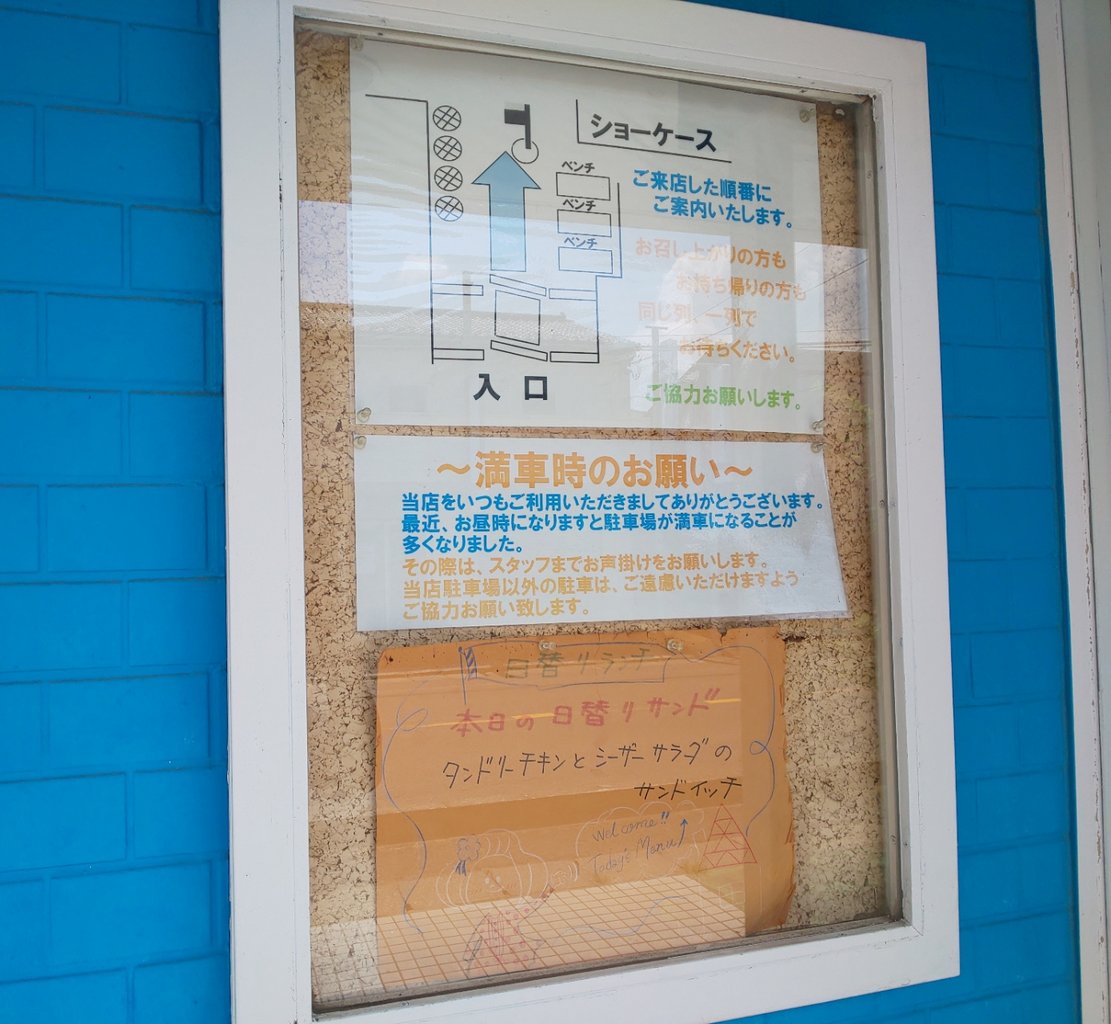 ショーケース
ベンチ
ベンチ
ベンチ
入口
ご来店した順番に
ご案内いたします。
お召し上がりの方も
お持ち帰りの方も
同じ列、一列で
お待ちください。
ご協力お願いします。
～満車時のお願い～
当店をいつもご利用いただきましてありがとうございます。
最近、お昼時になりますと駐車場が満車になることが
多くなりました。
その際は、スタッフまでお声掛けをお願いします。
当店駐車場以外の駐車は、ご遠慮いただけますよう
ご協力お願い致します。
日替りランチ
本日の日替りサンド
タンドリーチキンとシーザーサラダの
サンドイッチ
Welcome!!
Today's Manu